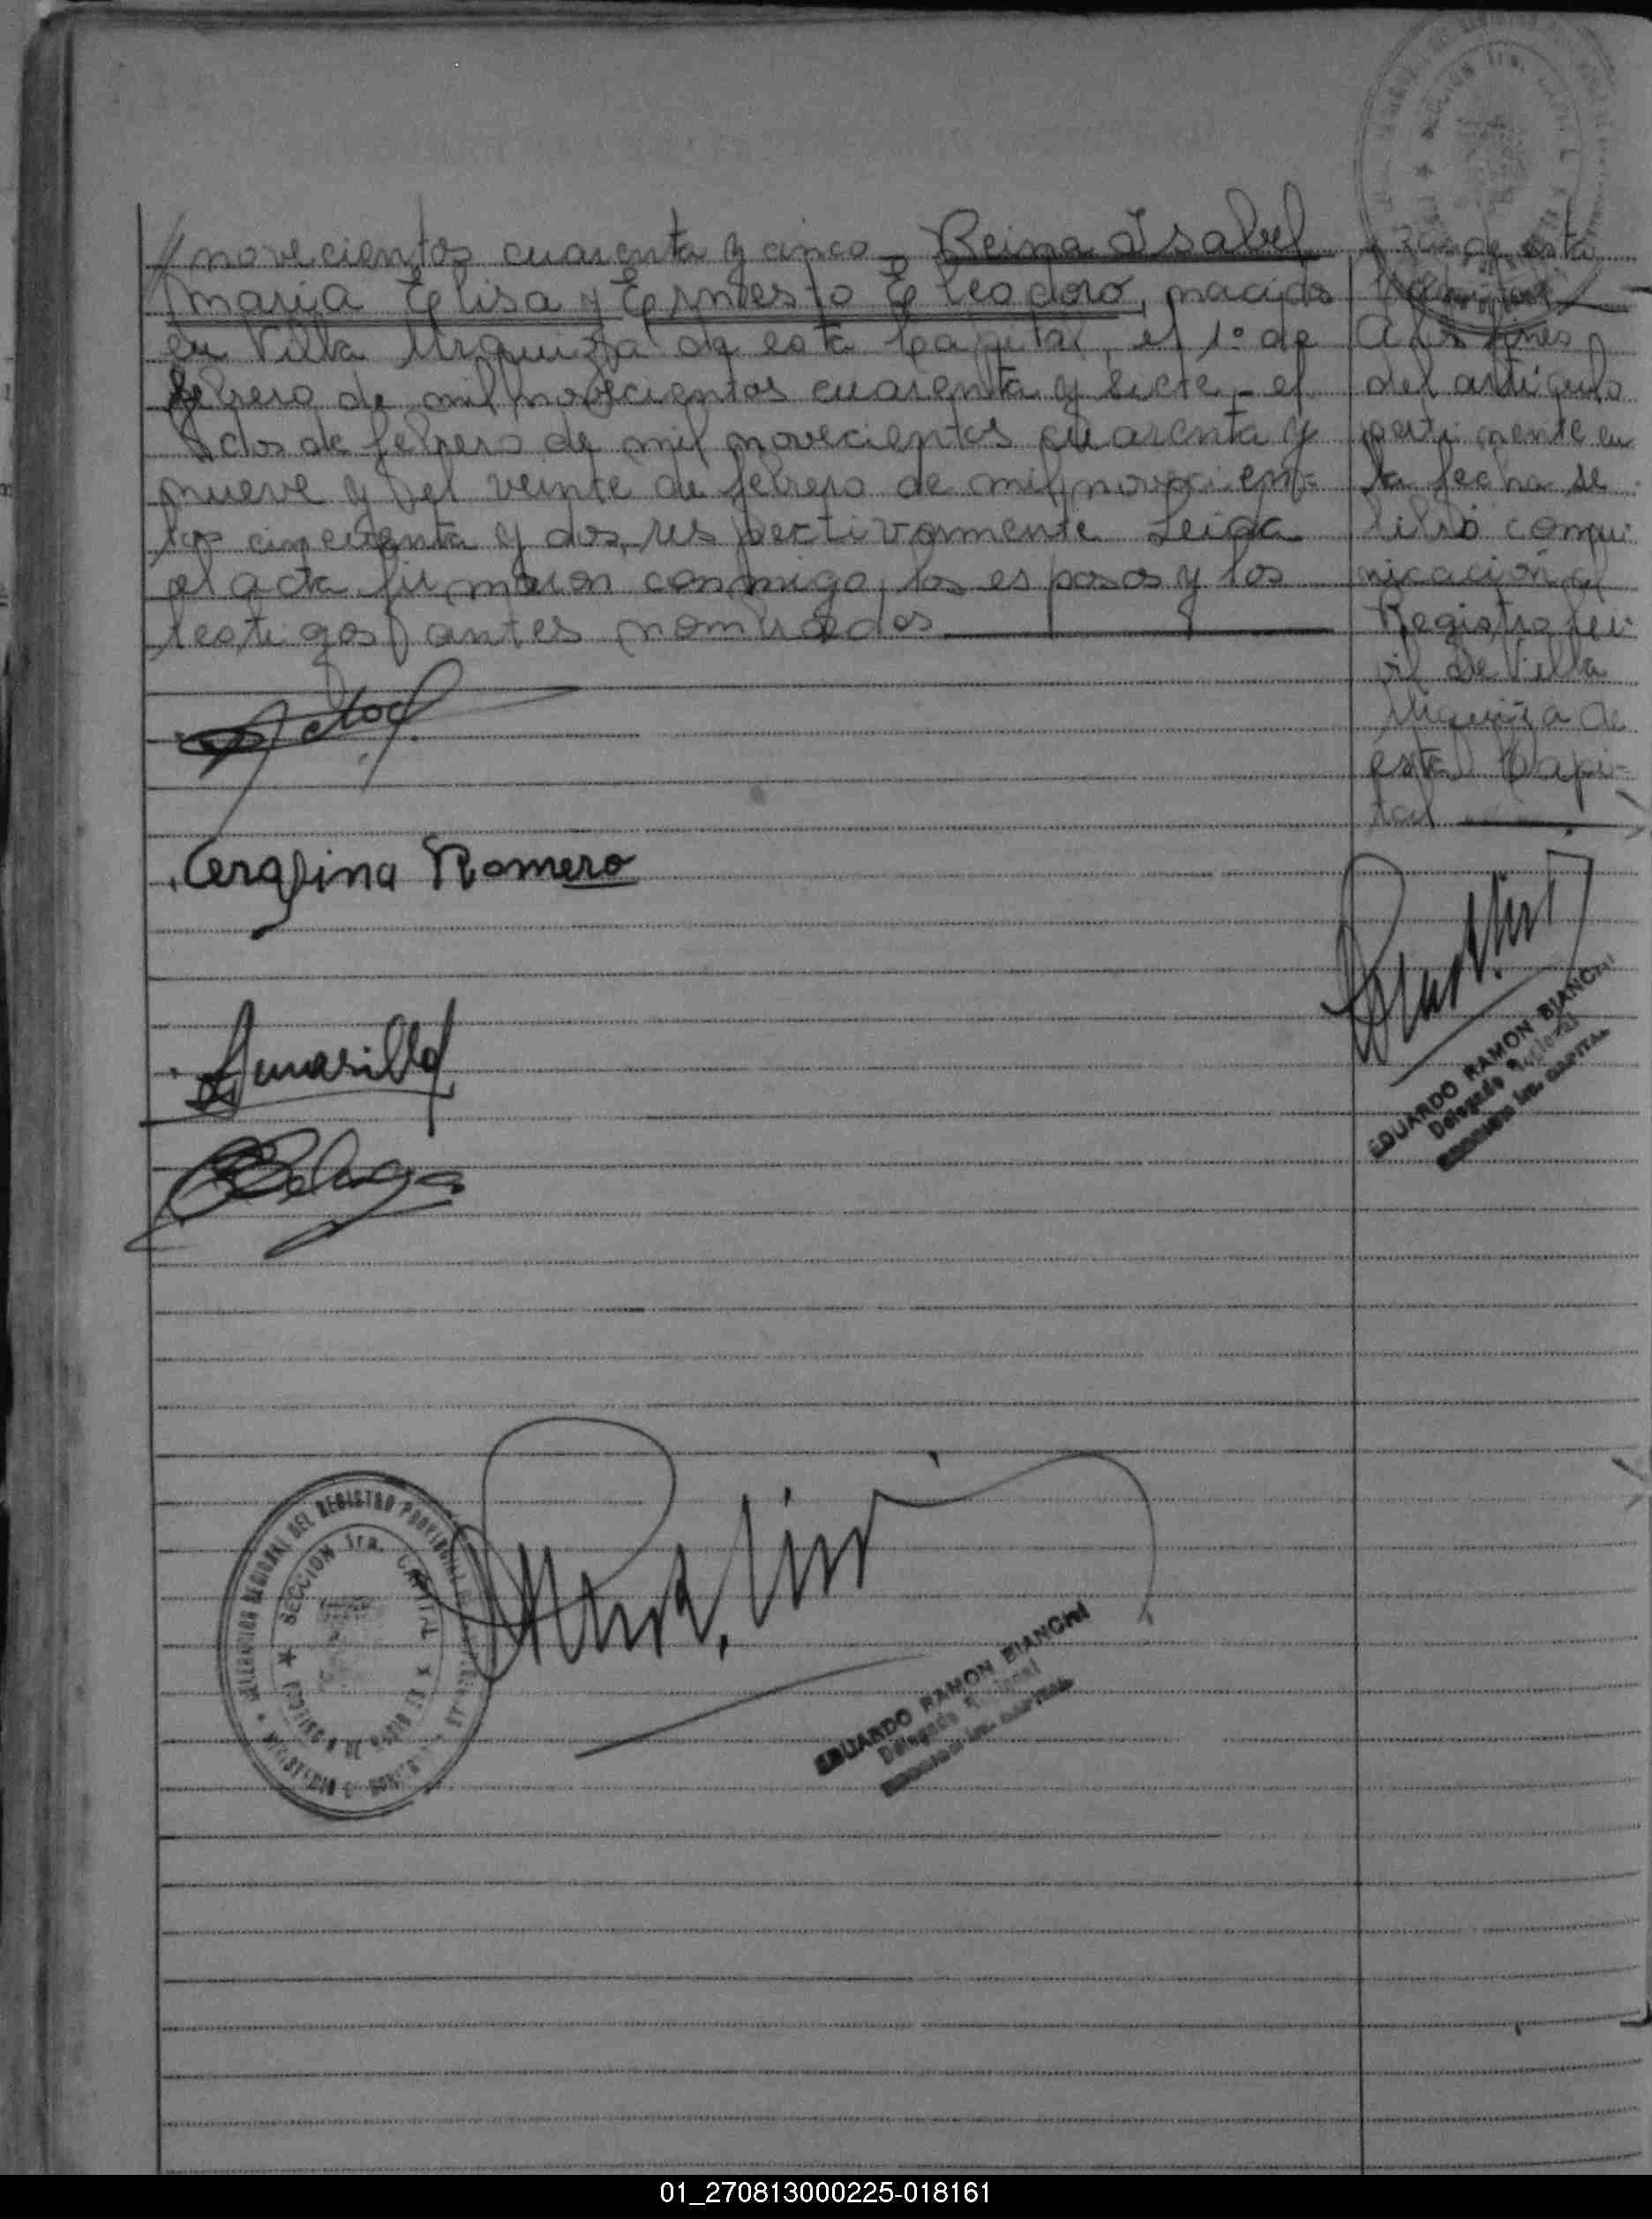 novecientos cuarenta y cinco - Reina Isabel
Maria Elisa y Ernesto Eleodoro, nacidos
en Villa Urquiza de esta Capital, el 1º de
febrero de mil novecientos cuarenta y siete - el
dos de febrero de mil novecientos cuarenta y
nueve y el veinte de febrero de mil novecien=
tos cincuenta y dos, respectivamente. Leida
el acta firmaron conmigo, los esposos y los
testigos antes nombrados
de esta
A los fines
del artículo
pertinente en
la fecha se
libró comu-
nicación al
Registro Ci-
vil de Villa
Urquiza de
esta Capi-
tal
Cerafina Romero
Amarilla
EDUARDO RAMON BIANCHI
Delegado Regional
SECCION 1ra. CAPITAL
SECCION 1ra. CAPITAL
EDUARDO RAMON BIANCHI
Delegado Regional
SECCION 1ra. CAPITAL
01_270813000225-018161